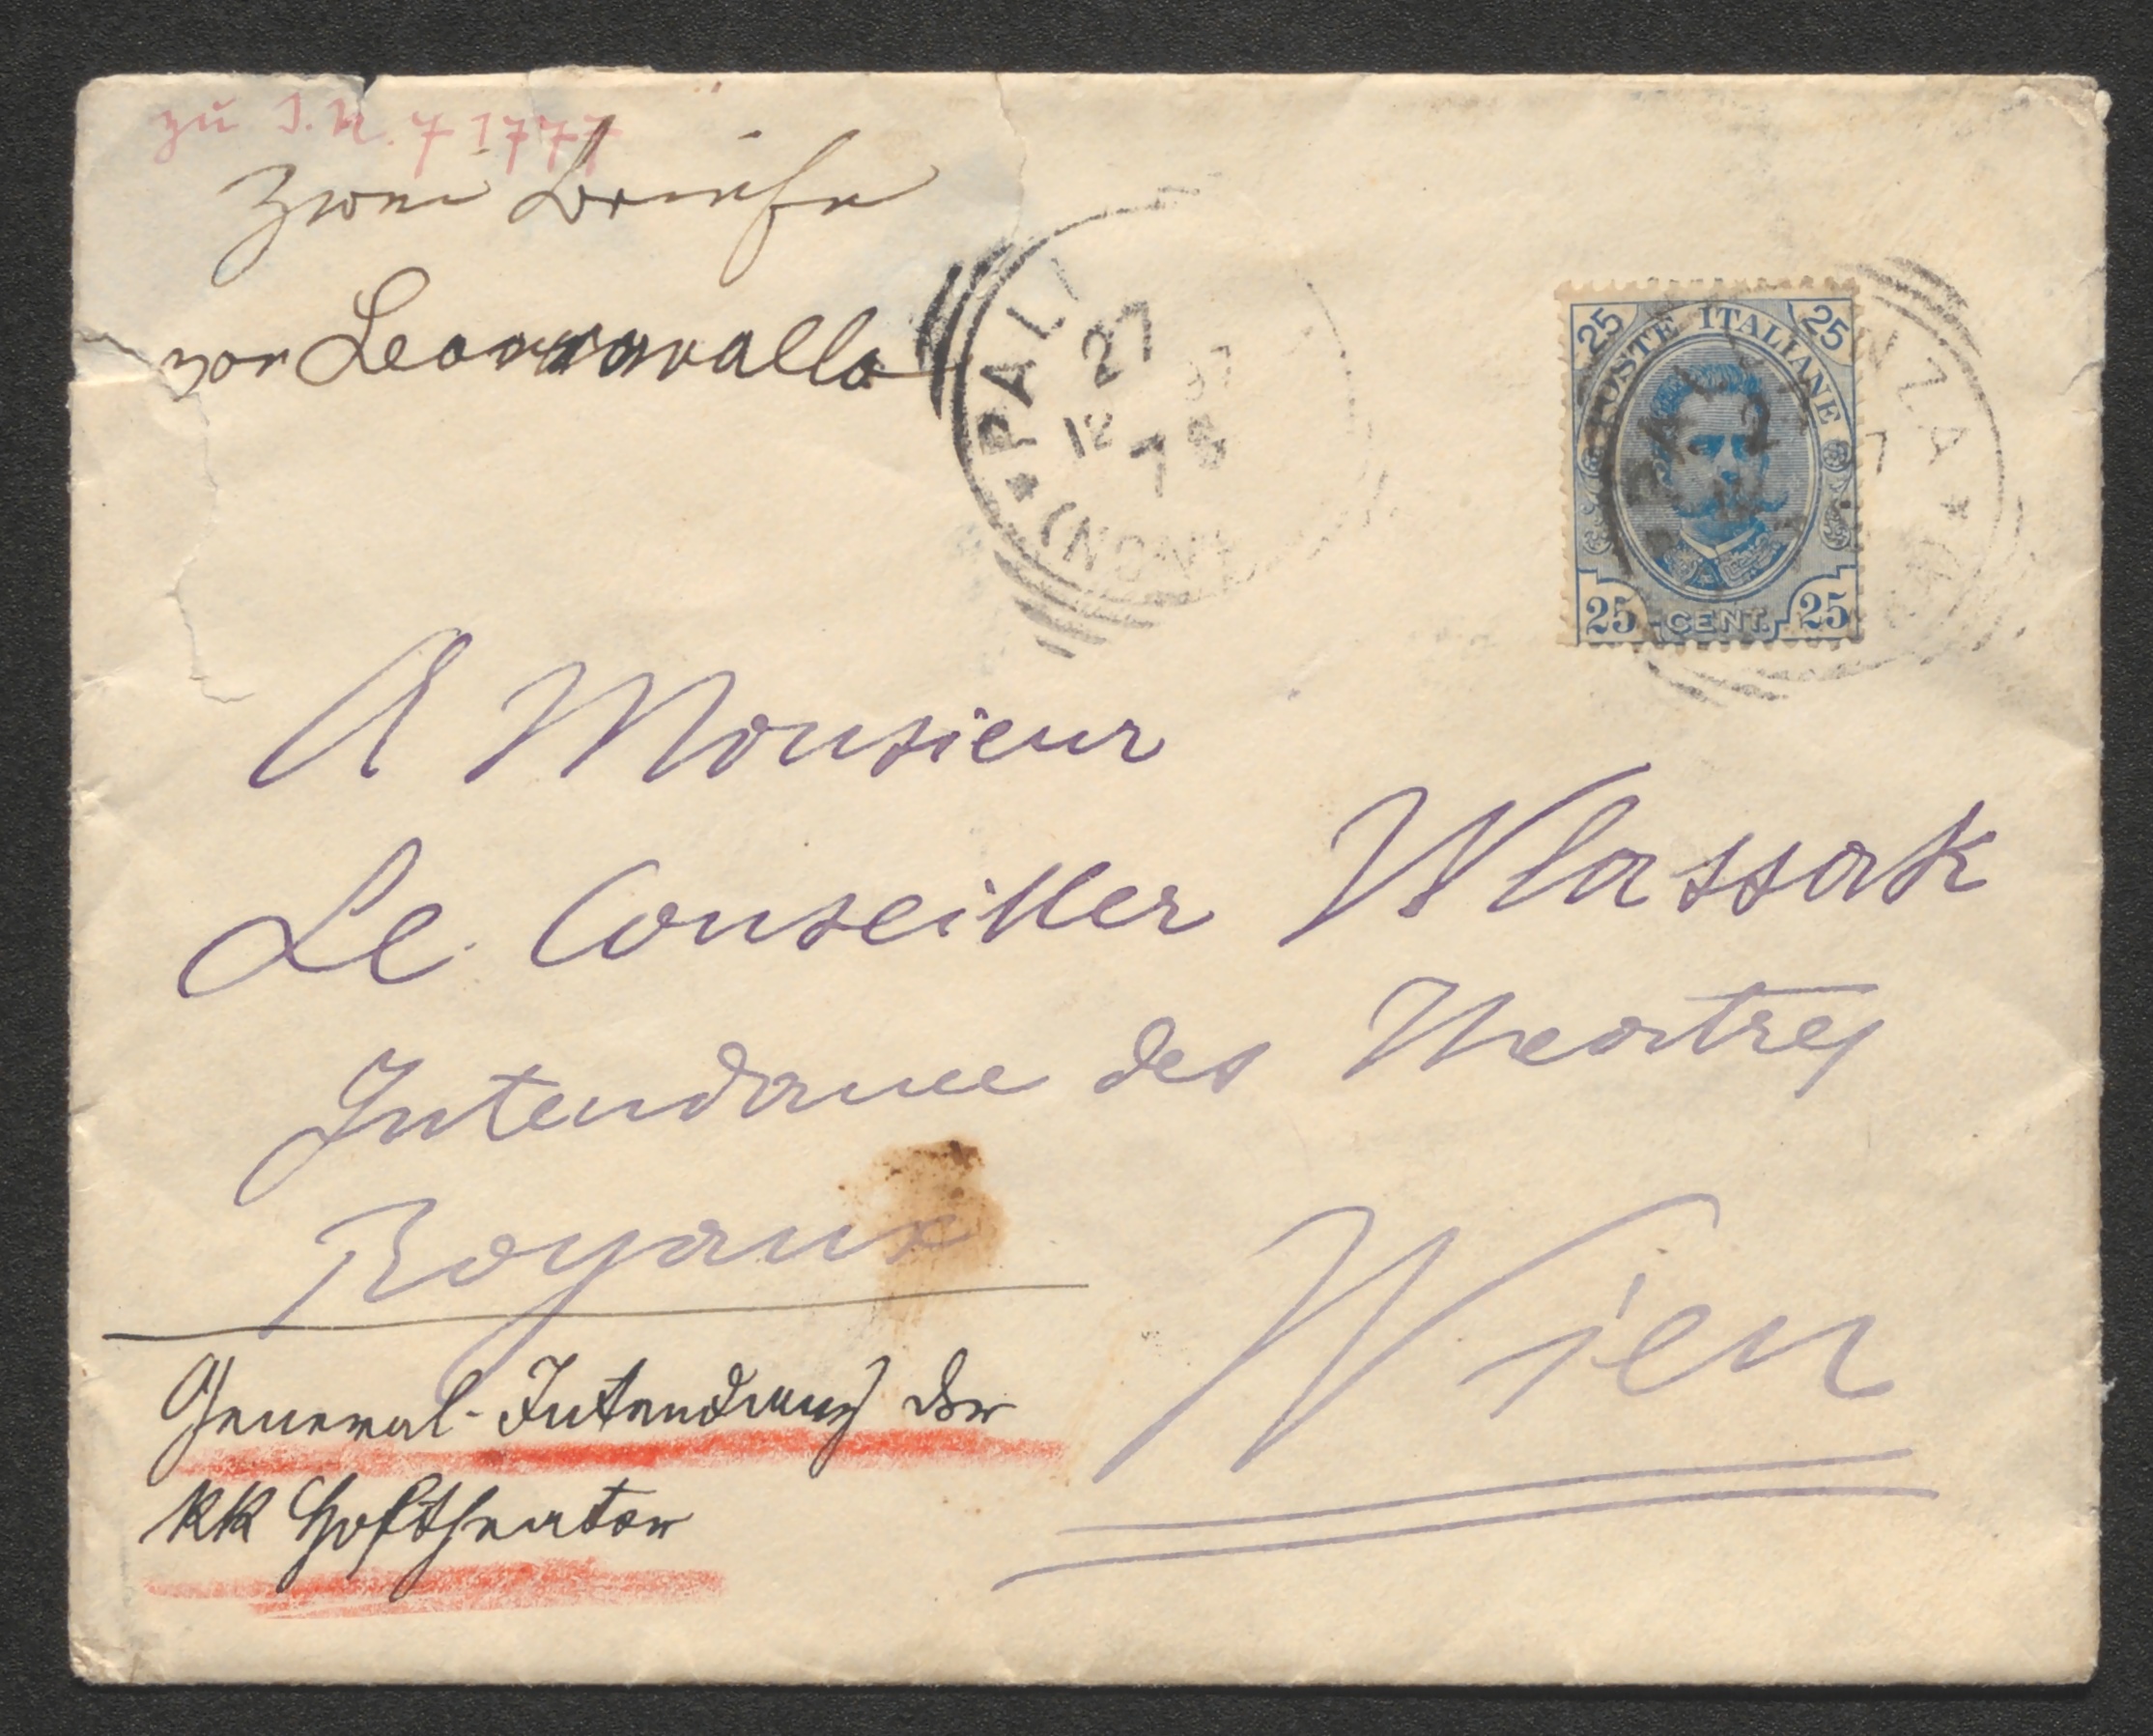 zu I.N. 71777
Zwei Briefe
von Leoncavallo
PALL
27
12 97
7 S
(NO
POSTE ITALIANE
25 25
NZA
25 CENT. 25
A Monsieur
Le Conseiller Wlassak
Intendance des Theatres
Royaux
Wien
General-Intendanz der
KK Hoftheater